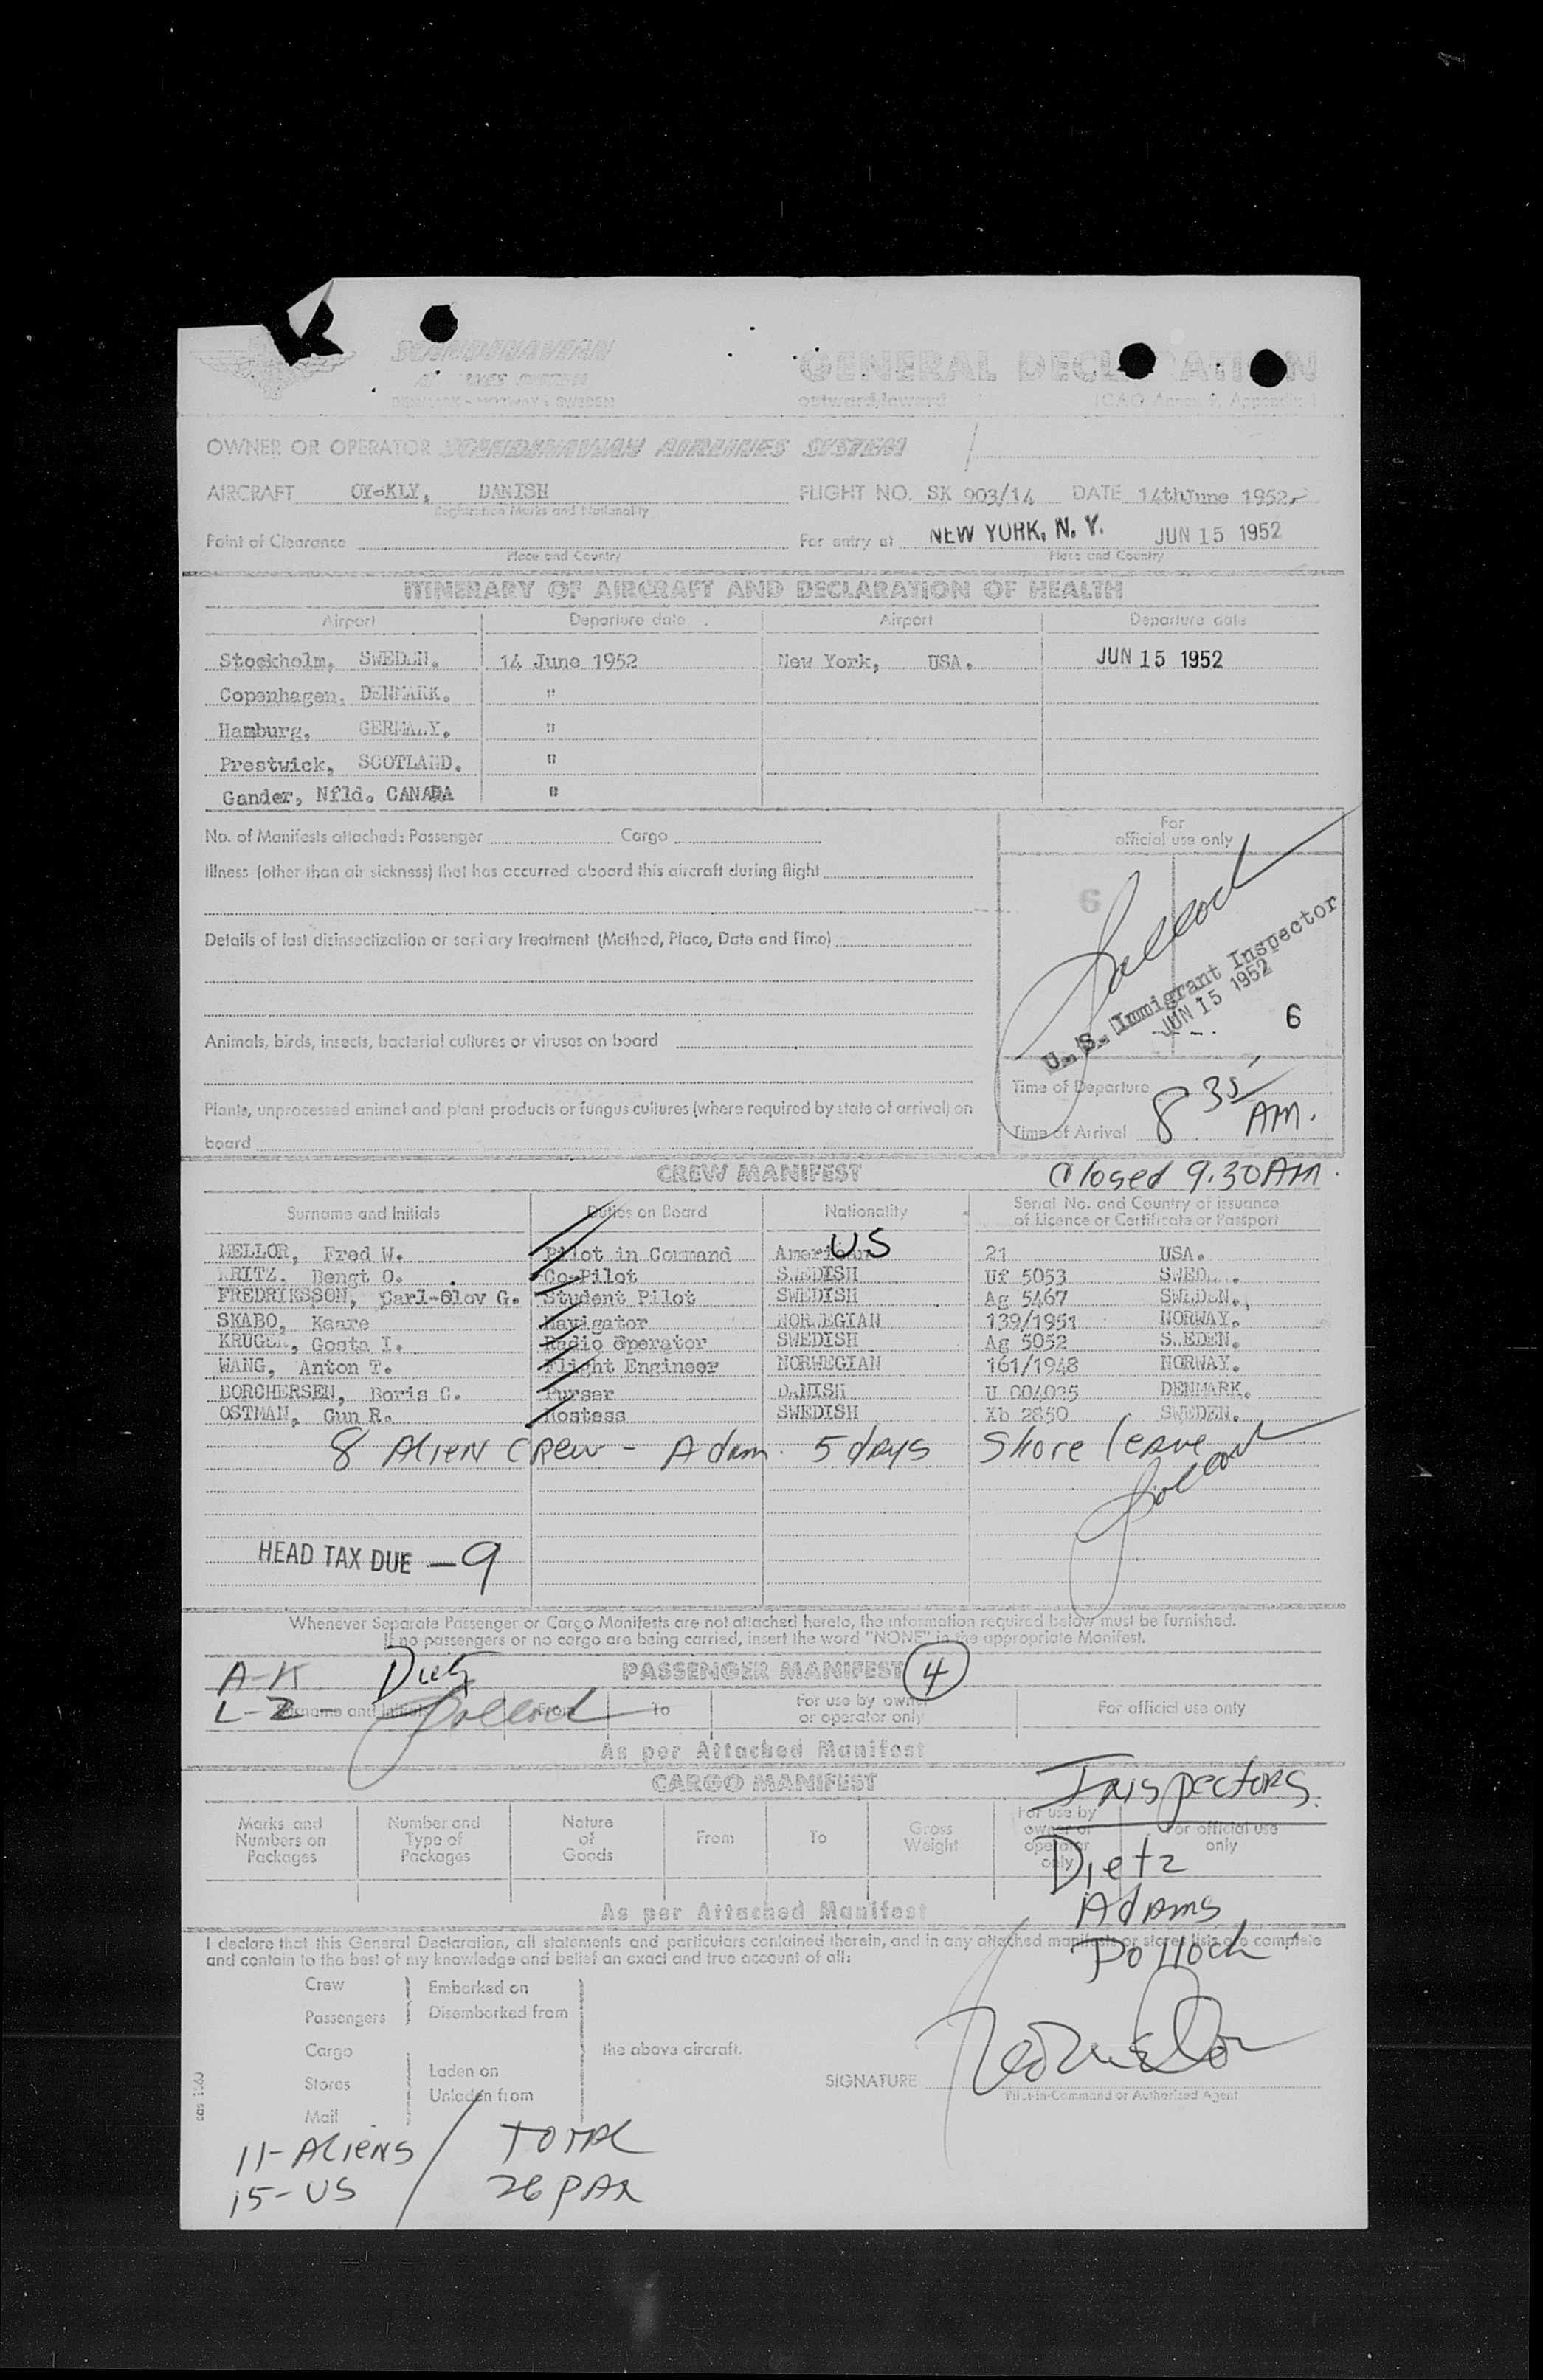 SCANDINAVIAN
SYSTEM
DENMARK - NORWAY - SWEDEN
GENERAL DECLARATION
outward/inward
ICAO Annex 9, Appendix 1
OWNER OR OPERATOR SCANDINAVIAN AIRLINES SYSTEM
AIRCRAFT OY-KLY, DANISH FLIGHT NO. SK 903/14 DATE 14thJune 1952.
Registration Marks and Nationality
Point of Clearance For entry at NEW YORK, N. Y. JUN 15 1952
Place and Country Place and Country
ITINERARY OF AIRCRAFT AND DECLARATION OF HEALTH
Airport Departure date Airport Departure date
Stockholm, SWEDEN. 14 June 1952 New York, USA. JUN 15 1952
Copenhagen, DENMARK. "
Hamburg, GERMANY. "
Prestwick, SCOTLAND. "
Gander, Nfld. CANADA "
No. of Manifests attached: Passenger Cargo
For official use only
Illness (other than air sickness) that has occurred aboard this aircraft during flight
6
Pollock
Details of last disinsectization or sanitary treatment (Method, Place, Date and Time)
U. S. Immigrant Inspector
JUN 15 1952
6
Animals, birds, insects, bacterial cultures or viruses on board
Time of Departure
Plants, unprocessed animal and plant products or fungus cultures (where required by state of arrival) on
board
Time of Arrival 8 35 AM.
CREW MANIFEST
Closed 9.30 AM.
Surname and Initials Duties on Board Nationality Serial No. and Country of issuance
of Licence or Certificate or Passport
MELLOR, Fred W. Pilot in Command American US 21 USA.
KRITZ. Bengt O. Co-Pilot SWEDISH Uf 5053 SWED
FREDRIKSSON, Carl-Olov G. Student Pilot SWEDISH Ag 5467 SWEDEN.
SKABO, Kaare Navigator NORWEGIAN 139/1951 NORWAY.
KRUGER, Gosta I. Radio Operator SWEDISH Ag 5052 SWEDEN.
WANG, Anton T. Flight Engineer NORWEGIAN 161/1948 NORWAY.
BORCHERSEN, Boris C. Purser DANISH U 004025 DENMARK.
OSTMAN, Gun R. Hostess SWEDISH Xb 2850 SWEDEN.
8 Alien Crew - Adm. 5 days Shore leave
Pollock
HEAD TAX DUE - 9
Whenever Separate Passenger or Cargo Manifests are not attached hereto, the information required below must be furnished.
If no passengers or no cargo are being carried, insert the word "NONE" in the appropriate Manifest.
A-K Dietz PASSENGER MANIFEST 4
L-Z Pollock
Surname and Initials From To For use by owner
or operator only For official use only
As per Attached Manifest
CARGO MANIFEST
Inspectors.
Marks and
Numbers on
Packages
Number and
Type of
Packages
Nature
of
Goods
From
To
Gross
Weight
For use by
owner or
operator
only
For official use
only
Dietz
Adams
Pollock
As per Attached Manifest
I declare that this General Declaration, all statements and particulars contained therein, and in any attached manifests or stores lists are complete
and contain to the best of my knowledge and belief an exact and true account of all:
Crew
Passengers
Embarked on
Disembarked from
Cargo
Stores
Mail
Laden on
Unladen from
the above aircraft.
SIGNATURE
Pilot-in-Command or Authorized Agent
11 - Aliens
15 - US
TOTAL
26 PAX